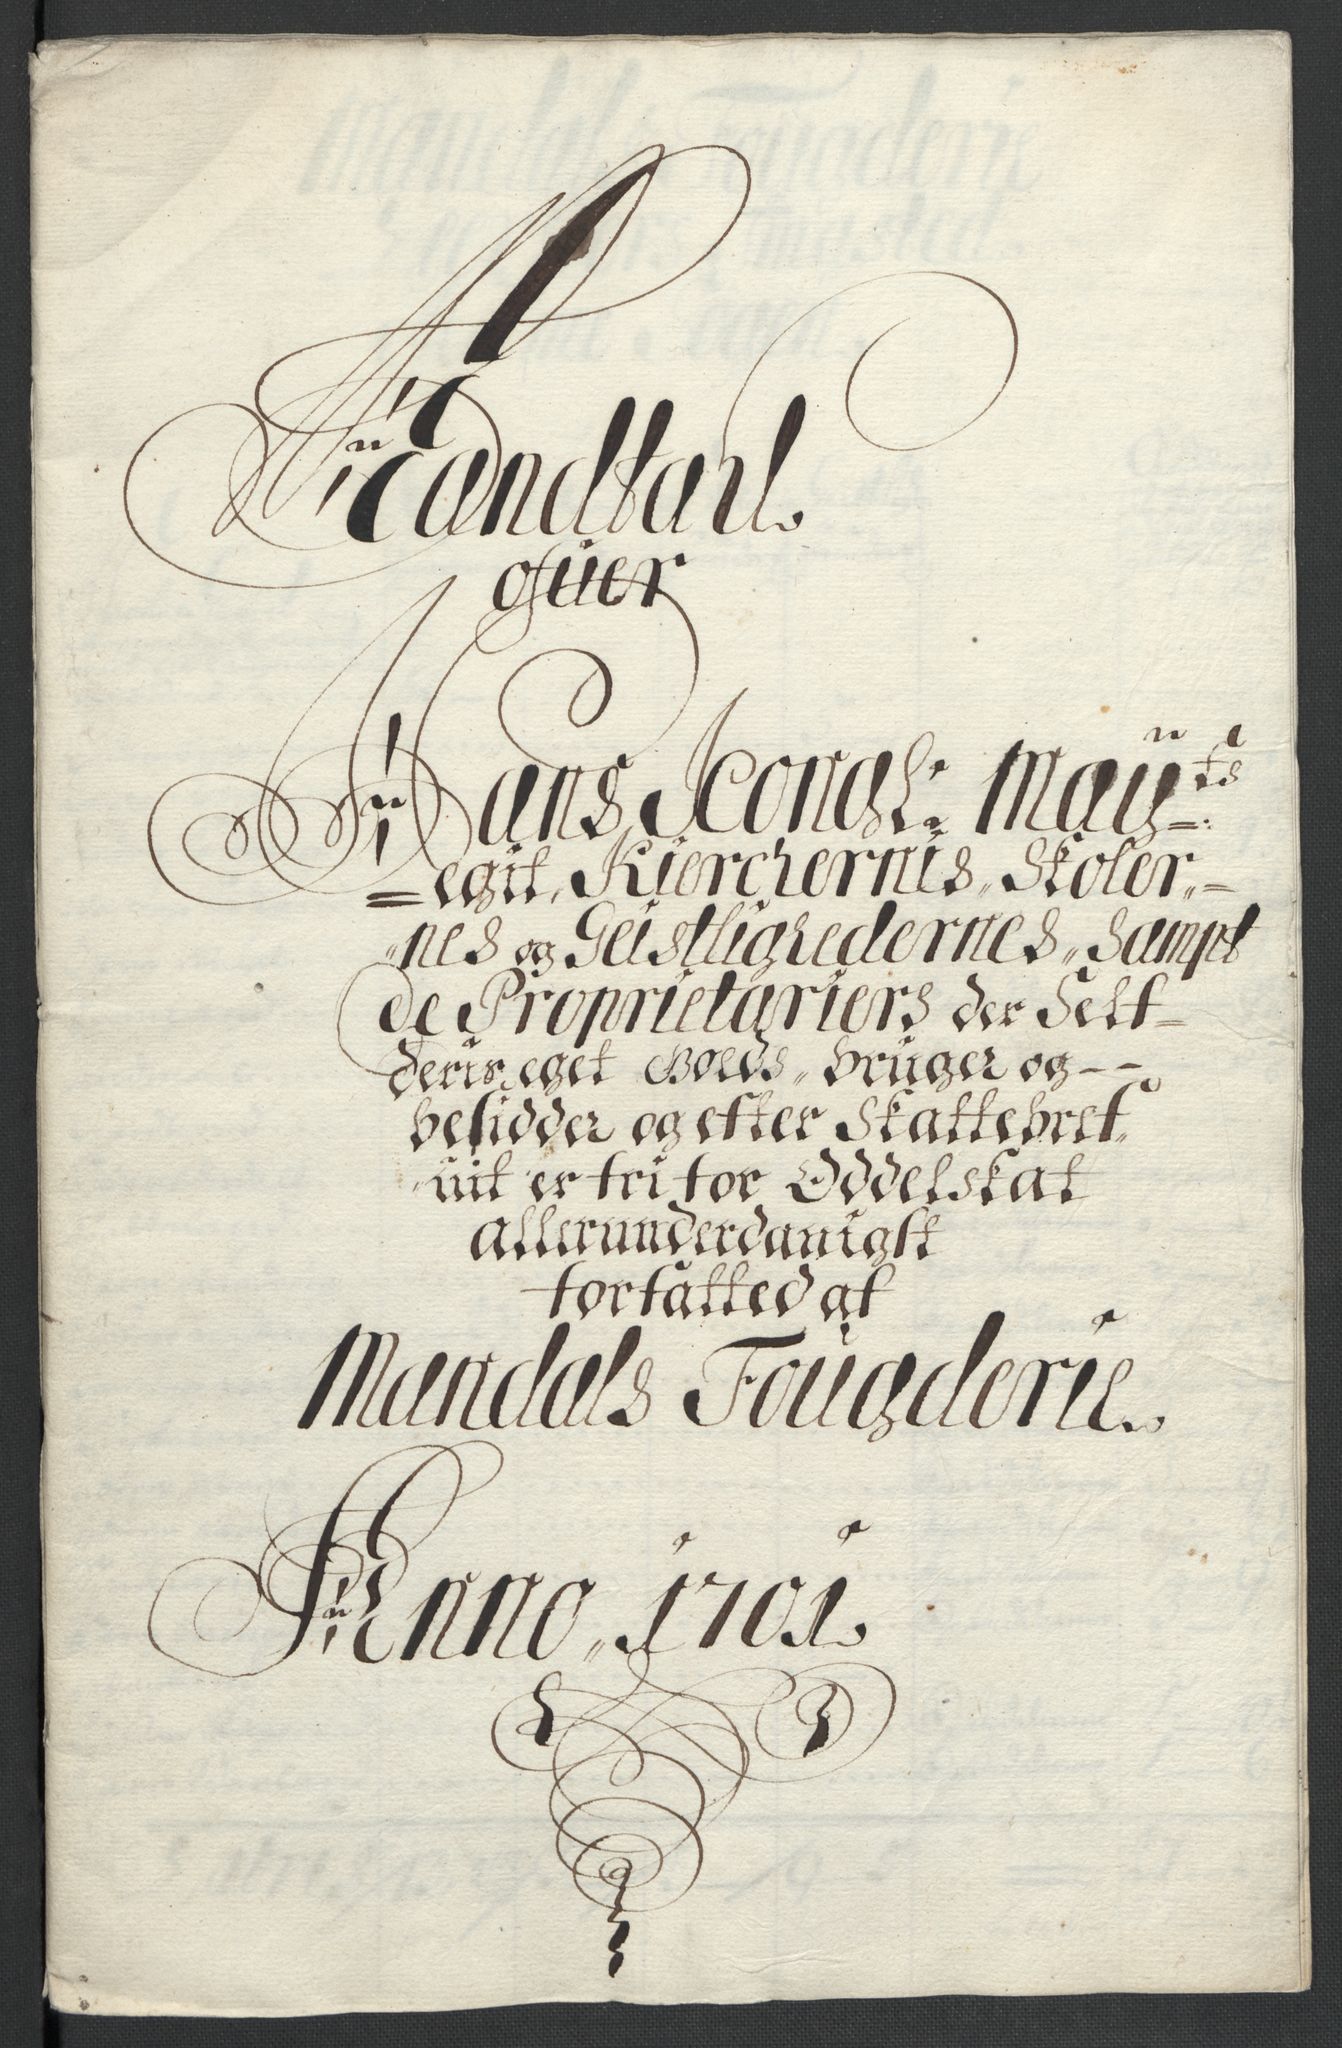 Mandtahl
ofuer
Hans Kongl: May:ts
=egit, Kierchernis, Skoler,,=
,,nes og Geistlighedernes,, sampt
de Proprietariers der Self=
deris eget Goeds,, bruger og--
besidder og efter Skattebref,,
,,uit er fri for Oddelskat
allerunderdanigst
forfatted af
Mandals Fougderie.
Anno,, 1701.